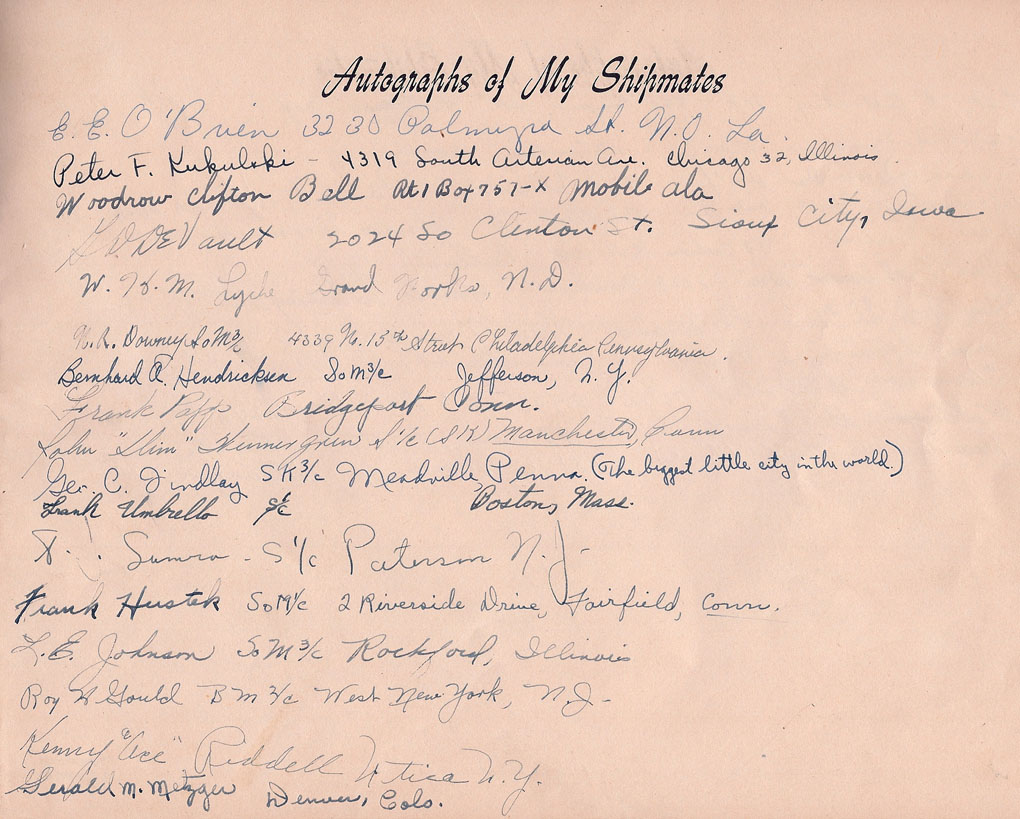 Autographs of My Shipmates
E. E. O'Brien 3230 Palmyra St. N.O. La.
Peter F. Kukulski - 4319 South Artesian Ave. Chicago 32, Illinois.
Woodrow Clifton Bell Rt 1 Box 757-X Mobile ala
DeVault 2024 So Clinton St. Sioux City, Iowa
W. H. M. Lyche Grand Forks, N.D.
N. R. Downey SoM 3/c 4339 No. 15th Street Philadelphia Pennsylvania.
Bernhard A. Hendricksen SoM 3/c Jefferson, N.Y.
Frank Papp Bridgeport Conn.
John "Slim" Wennergren S 1/c (SK) Manchester, Conn
Geo. C. Findlay SK 3/c Meadville Penna. (The biggest little city in the world.)
Frank Umbrello S 1/c Boston, Mass.
S 1/c Paterson N.J-
Frank Hustek SoM 1/c 2 Riverside Drive, Fairfield, Conn.
L. E. Johnson SoM 3/c Rockford, Illinois
Roy W Gould BM 2/c West New York, N.J-
Kenny "Ace" Riddell Utica N.Y.
Gerald M. Metzger Denver, Colo.